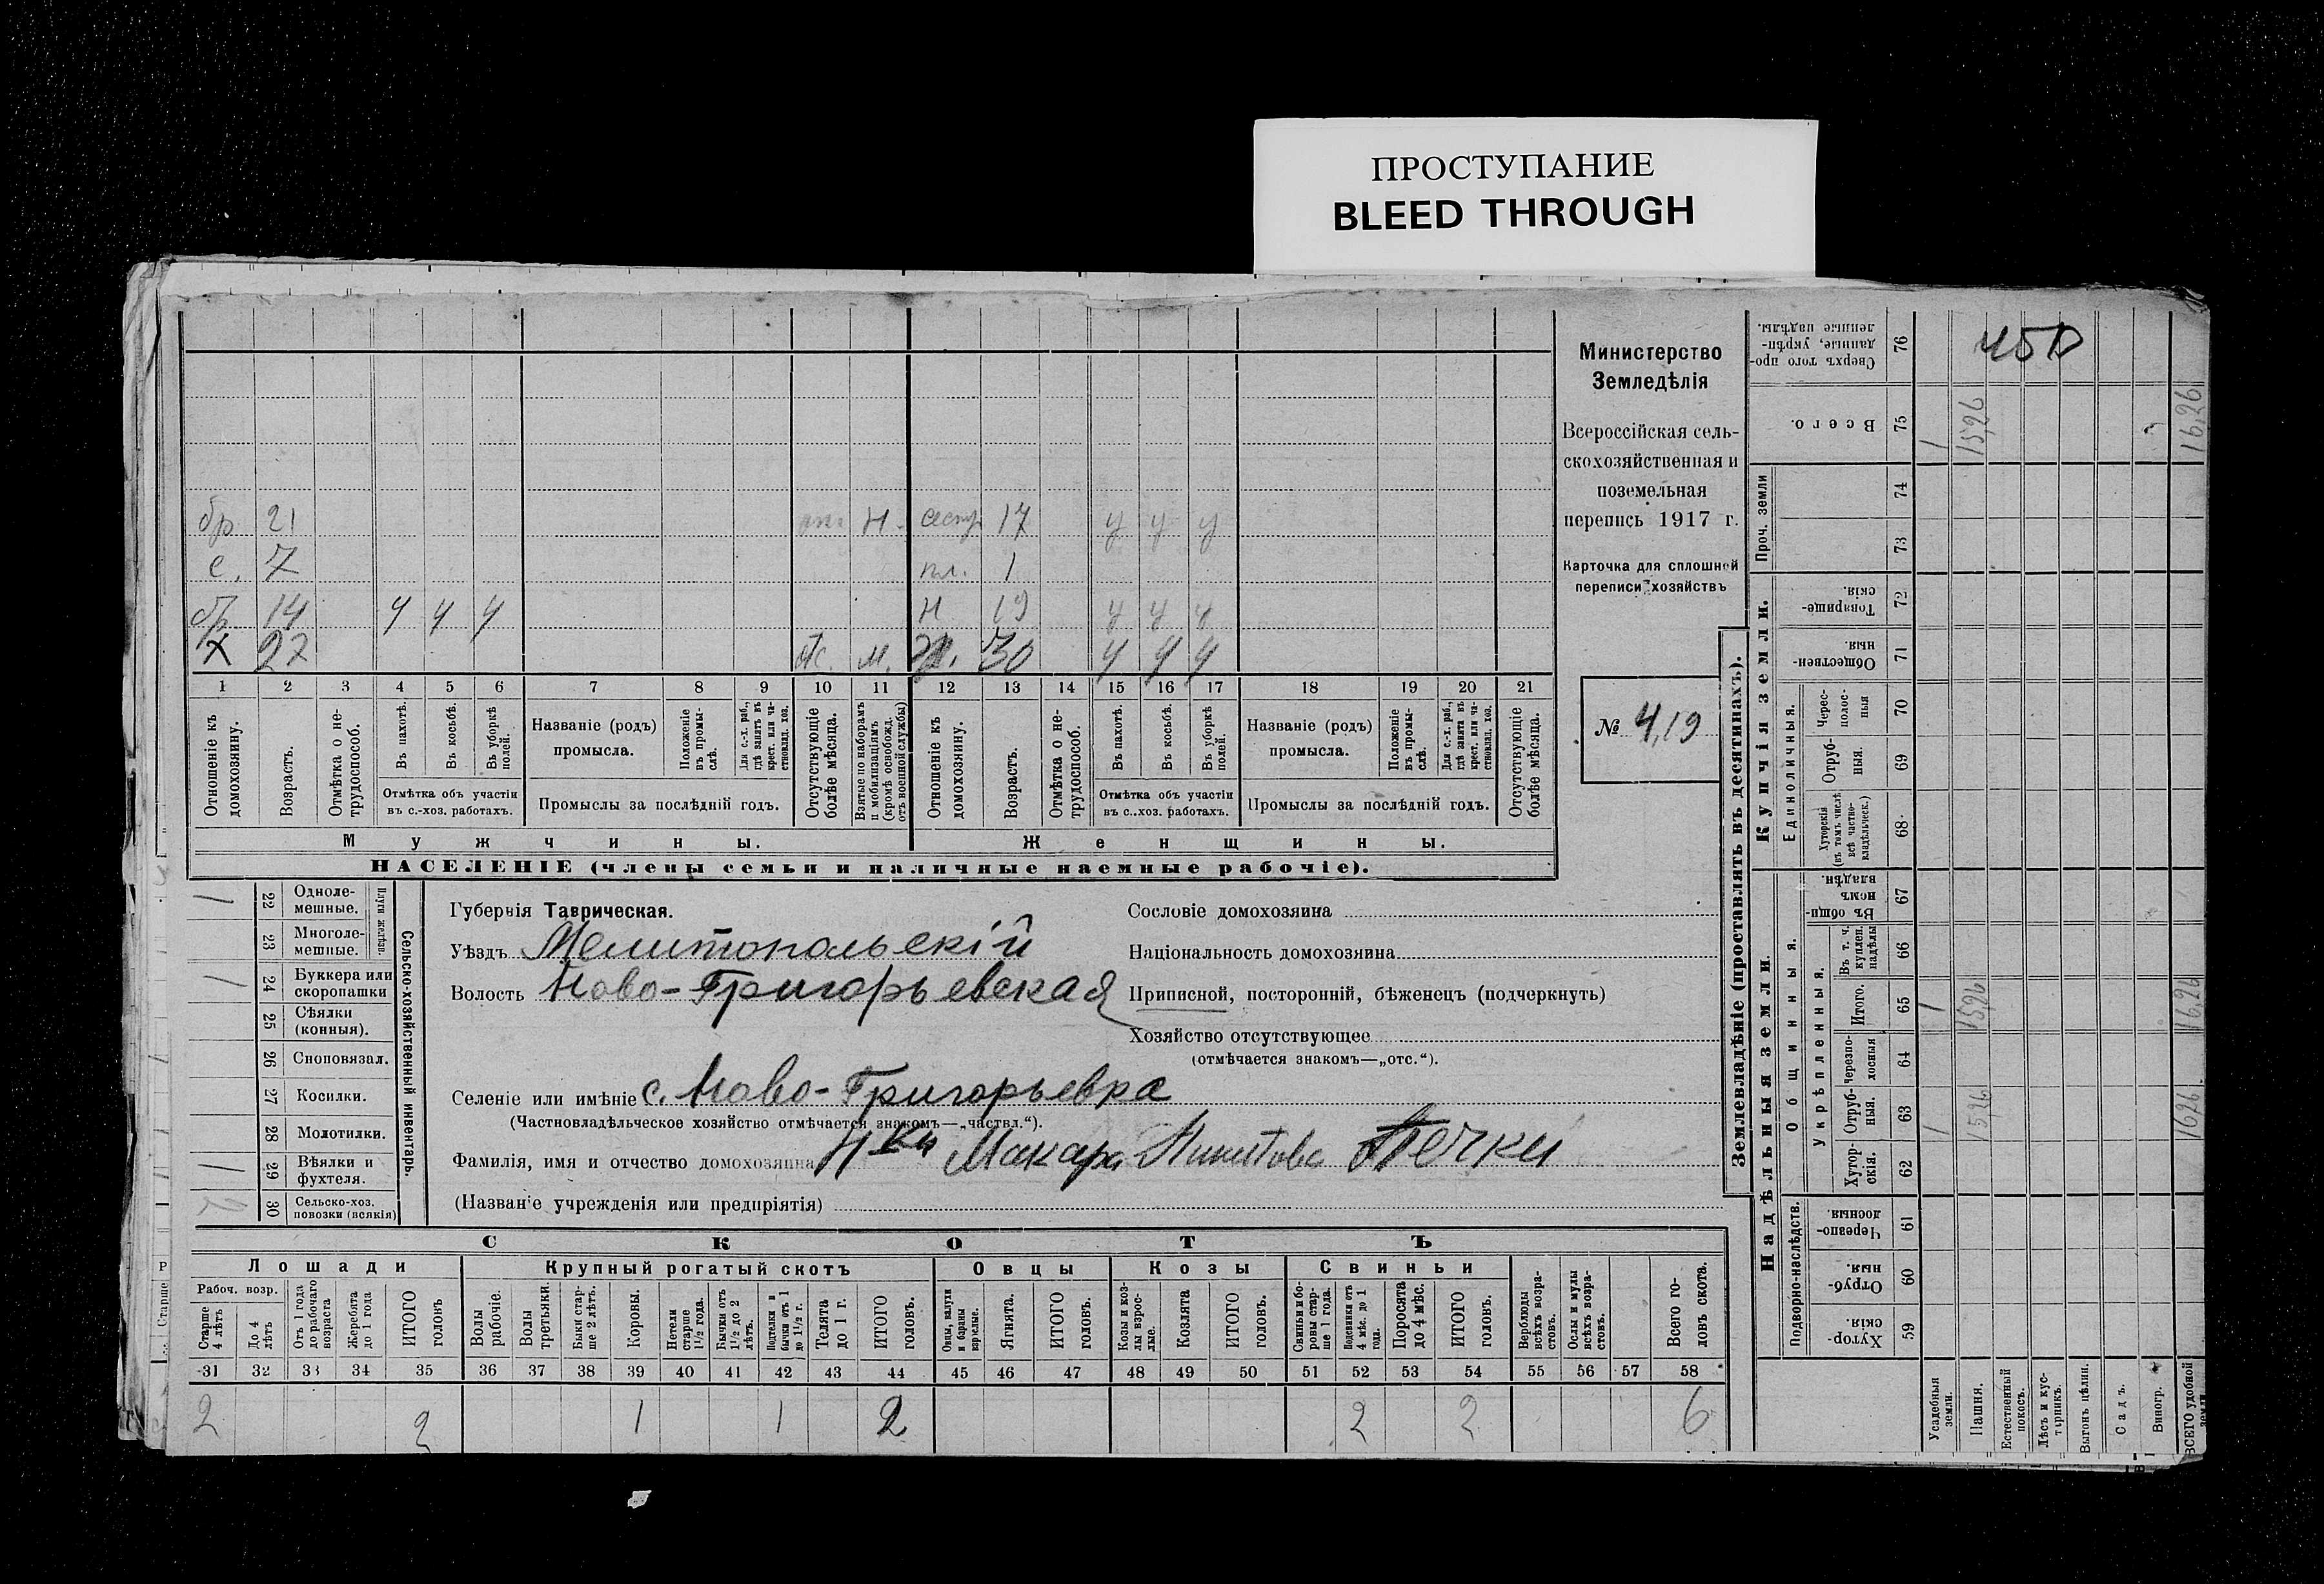 ПРОСТУПАНИЕ
BLEED THROUGH
Министерство
Земледѣлія
Всероссійская сель-
скохозяйственная и
поземельная
перепись 1917 г.
Карточка для сплошной
переписи хозяйствъ
№ 419
бр 21 Н. сестр 17 у у у
с. 7 пл. 1
бр 14 у у у Н 19 у у у
х 27 отс. м. ж. 30 у у у
1 2 3 4 5 6 7 8 9 10 11 12 13 14 15 16 17 18 19 20 21
Отношеніе къ домохозяину.
Возрастъ.
Отмѣтка о не-трудоспособ.
Въ пахотѣ.
Въ косьбѣ.
Въ уборкѣ полей.
Отмѣтка объ участіи
въ с.-хоз. работахъ.
Названіе (родъ)
промысла.
Положеніе въ промы-слѣ.
Для с.-х. раб., гдѣ занятъ въ крест. или ча-стновлад. хоз.
Промыслы за послѣдній годъ.
Отсутствующіе болѣе мѣсяца.
Взятые по наборамъ и мобилизаціямъ (кромѣ освобожд. отъ военной службы)
Отношеніе къ домохозяину.
Возрастъ.
Отмѣтка о не-трудоспособ.
Въ пахотѣ.
Въ косьбѣ.
Въ уборкѣ полей.
Отмѣтка объ участіи
въ с..хоз. работахъ.
Названіе (родъ)
промысла.
Положеніе въ промы-слѣ.
Для с.-х. раб., гдѣ занята въ крест. или ча-стновлад. хоз.
Промыслы за послѣдній годъ.
Отсутствующіе болѣе мѣсяца.
Мужчины. Женщины.
НАСЕЛЕНІЕ (члены семьи и наличные наемные рабочіе).
Сельско-хозяйственный инвентарь.
Плуги желѣзн.
1 22 Одноле-мешные.
23 Многоле-мешные.
1 24 Буккера или скоропашки
25 Сѣялки (конныя).
26 Сноповязал.
27 Косилки.
28 Молотилки.
1 29 Вѣялки и фухтеля.
2 30 Сельско-хоз. повозки (всякія)
Губернія Таврическая.
Уѣздъ Мелитопольскій
Волость Ново-Григорьевская
Селеніе или имѣніе с. Ново-Григорьевка
(Частновладѣльческое хозяйство отмѣчается знакомъ—„частвл.“).
Фамилія, имя и отчество домохозяина Н-ки Макара Никитова Печки
(Названіе учрежденія или предпріятія)
Сословіе домохозяина
Національность домохозяина
Приписной, посторонній, бѣженецъ (подчеркнуть)
Хозяйство отсутствующее
(отмѣчается знакомъ—„отс.“).
СКОТЪ
Лошади
Крупный рогатый скотъ
Овцы
Козы
Свиньи
Рабоч. возр.
Старше 4 лѣтъ
До 4 лѣтъ
Отъ 1 года до рабочаго возраста
Жеребята до 1 года
ИТОГО головъ
Волы рабочіе.
Волы третьяки.
Быки стар-ше 2 лѣтъ.
Коровы.
Нетели старше 1½ года.
Бычки отъ 1½ до 2 лѣтъ.
Подтелки и бычки отъ 1 до 1½ г.
Телята до 1 г.
ИТОГО головъ.
Овцы, валухи и бараны взрослые.
Ягнята.
ИТОГО головъ.
Козы и коз-лы взрос-лые.
Козлята
ИТОГО головъ.
Свиньи и бо-ровы стар-ше 1 года.
Подсвинки отъ 4 мѣс. до 1 года.
Поросята до 4 мѣс.
ИТОГО головъ.
Верблюды всѣхъ возра-стовъ.
Ослы и мулы всѣхъ возра-стовъ.
Всего го-ловъ скота.
31 32 33 34 35 36 37 38 39 40 41 42 43 44 45 46 47 48 49 50 51 52 53 54 55 56 57 58
2 2 1 1 2 2 2 6
Землевладѣніе (проставлять въ десятинахъ).
Надѣльныя земли.
Купчія земли.
Проч. земли
Подворно-наслѣдств.
Общинныя.
Укрѣпленныя.
Единоличныя.
Сверхъ того про-данные, укрѣп-ленные надѣлы. 76
450
Всего. 75 1 15,26 16,26
74
73
Товарище-скія. 72
Обществен-ныя. 71
Черес-полос-ныя 70
Отруб-ныя. 69
Хуторскія (въ томъ числѣ всѣ частно-владѣльческ.) 68
Въ общи-номъ владѣн. 67
Въ т. ч. куплен. надѣлы 66
Итого. 65 1 15,26 16,26
Черезпо-лосныя 64
Отруб-ныя. 63 1 15,26 16,26
Хутор-скія. 62
Черезпо-лосныя. 61
Отруб-ныя. 60
Хутор-скія. 59
Усадебныя земли.
Пашня.
Естественный покосъ.
Лѣсъ и кус-тарникъ.
Выгонъ цѣлин.
Садъ.
Виногр.
ВСЕГО удобной земли